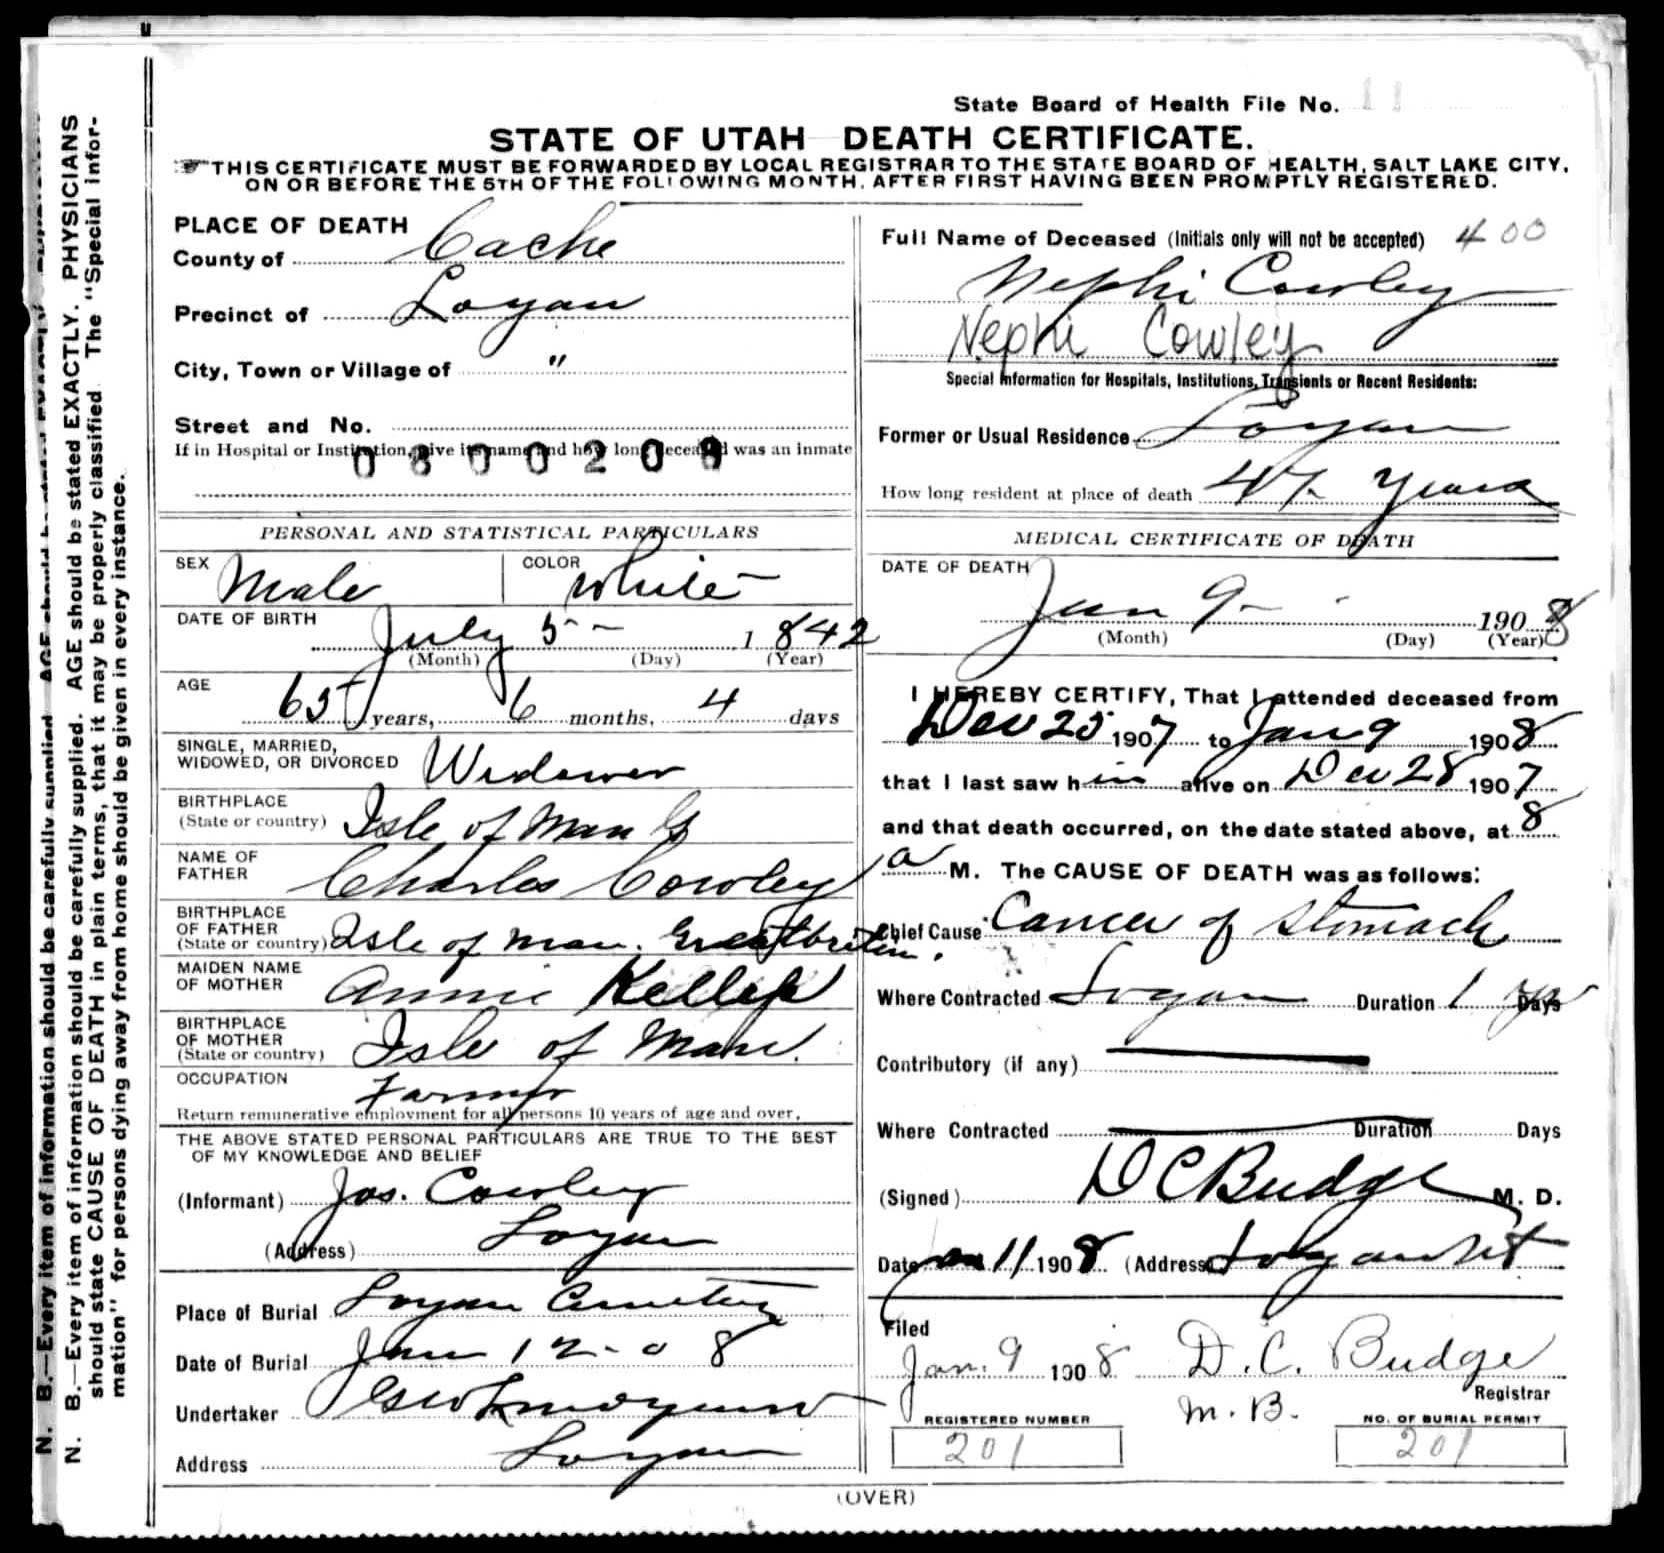 State Board of Health File No. 11
STATE OF UTAH DEATH CERTIFICATE.
THIS CERTIFICATE MUST BE FORWARDED BY LOCAL REGISTRAR TO THE STATE BOARD OF HEALTH, SALT LAKE CITY,
ON OR BEFORE THE 5TH OF THE FOLLOWING MONTH, AFTER FIRST HAVING BEEN PROMPTLY REGISTERED.
N. B.—Every item of information should be carefully supplied. AGE should be stated EXACTLY. PHYSICIANS
should state CAUSE OF DEATH in plain terms, that it may be properly classified. The "Special Infor-
mation" for persons dying away from home should be given in every instance.
PLACE OF DEATH
County of Cache
Precinct of Logan
City, Town or Village of "
Street and No.
If in Hospital or Institution, give its name and how long deceased was an inmate
0800209
PERSONAL AND STATISTICAL PARTICULARS
SEX Male COLOR White
DATE OF BIRTH July 5 1842
(Month) (Day) (Year)
AGE 65 years, 6 months, 4 days
SINGLE, MARRIED,
WIDOWED, OR DIVORCED Widower
BIRTHPLACE
(State or country) Isle of Man
NAME OF
FATHER Charles Cowley
BIRTHPLACE
OF FATHER
(State or country) Isle of man. Great briten.
MAIDEN NAME
OF MOTHER Annie
BIRTHPLACE
OF MOTHER
(State or country) Isle of Man.
OCCUPATION Farmer
Return remunerative employment for all persons 10 years of age and over.
THE ABOVE STATED PERSONAL PARTICULARS ARE TRUE TO THE BEST
OF MY KNOWLEDGE AND BELIEF
(Informant) Jos. Cowley
(Address) Logan
Place of Burial Logan Cemetery
Date of Burial Jan 12 - 08
Undertaker
Address Logan
Full Name of Deceased (Initials only will not be accepted) 400
Nephi Cowley
Nephi Cowley
Special Information for Hospitals, Institutions, Transients or Recent Residents:
Former or Usual Residence Logan
How long resident at place of death 47 Years
MEDICAL CERTIFICATE OF DEATH
DATE OF DEATH
Jan 9 1908
(Month) (Day) (Year)
I HEREBY CERTIFY, That I attended deceased from
Dec 25 1907 to Jan 9 1908
that I last saw him alive on Dec 28 1907
and that death occurred, on the date stated above, at 8
a M. The CAUSE OF DEATH was as follows:
Chief Cause Cancer of Stomach
Where Contracted Logan Duration 1 yr Days
Contributory (if any)
Where Contracted Duration Days
(Signed) D C Budge M. D.
Date Jan 11 1908 (Address) Logan Ut
Filed
Jan. 9 1908 D. C. Budge
Registrar
M. B.
REGISTERED NUMBER
201
NO. OF BURIAL PERMIT
201
(OVER)